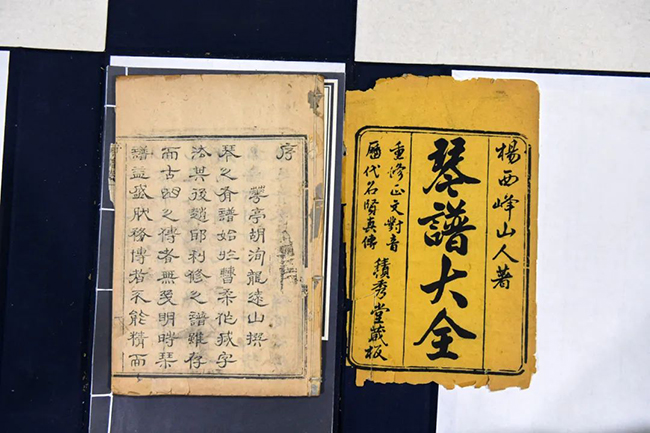 楊西峰山人著
琴譜大全
重修正文對音
歷代名賢真傳
積秀堂藏板
序
亭胡洵龍遠山撰
琴之有譜始於曹柔作減字
法其後趙耶利修之譜雖存
而古之傳者無幾明時琴
譜益盛肰務博者不能精而